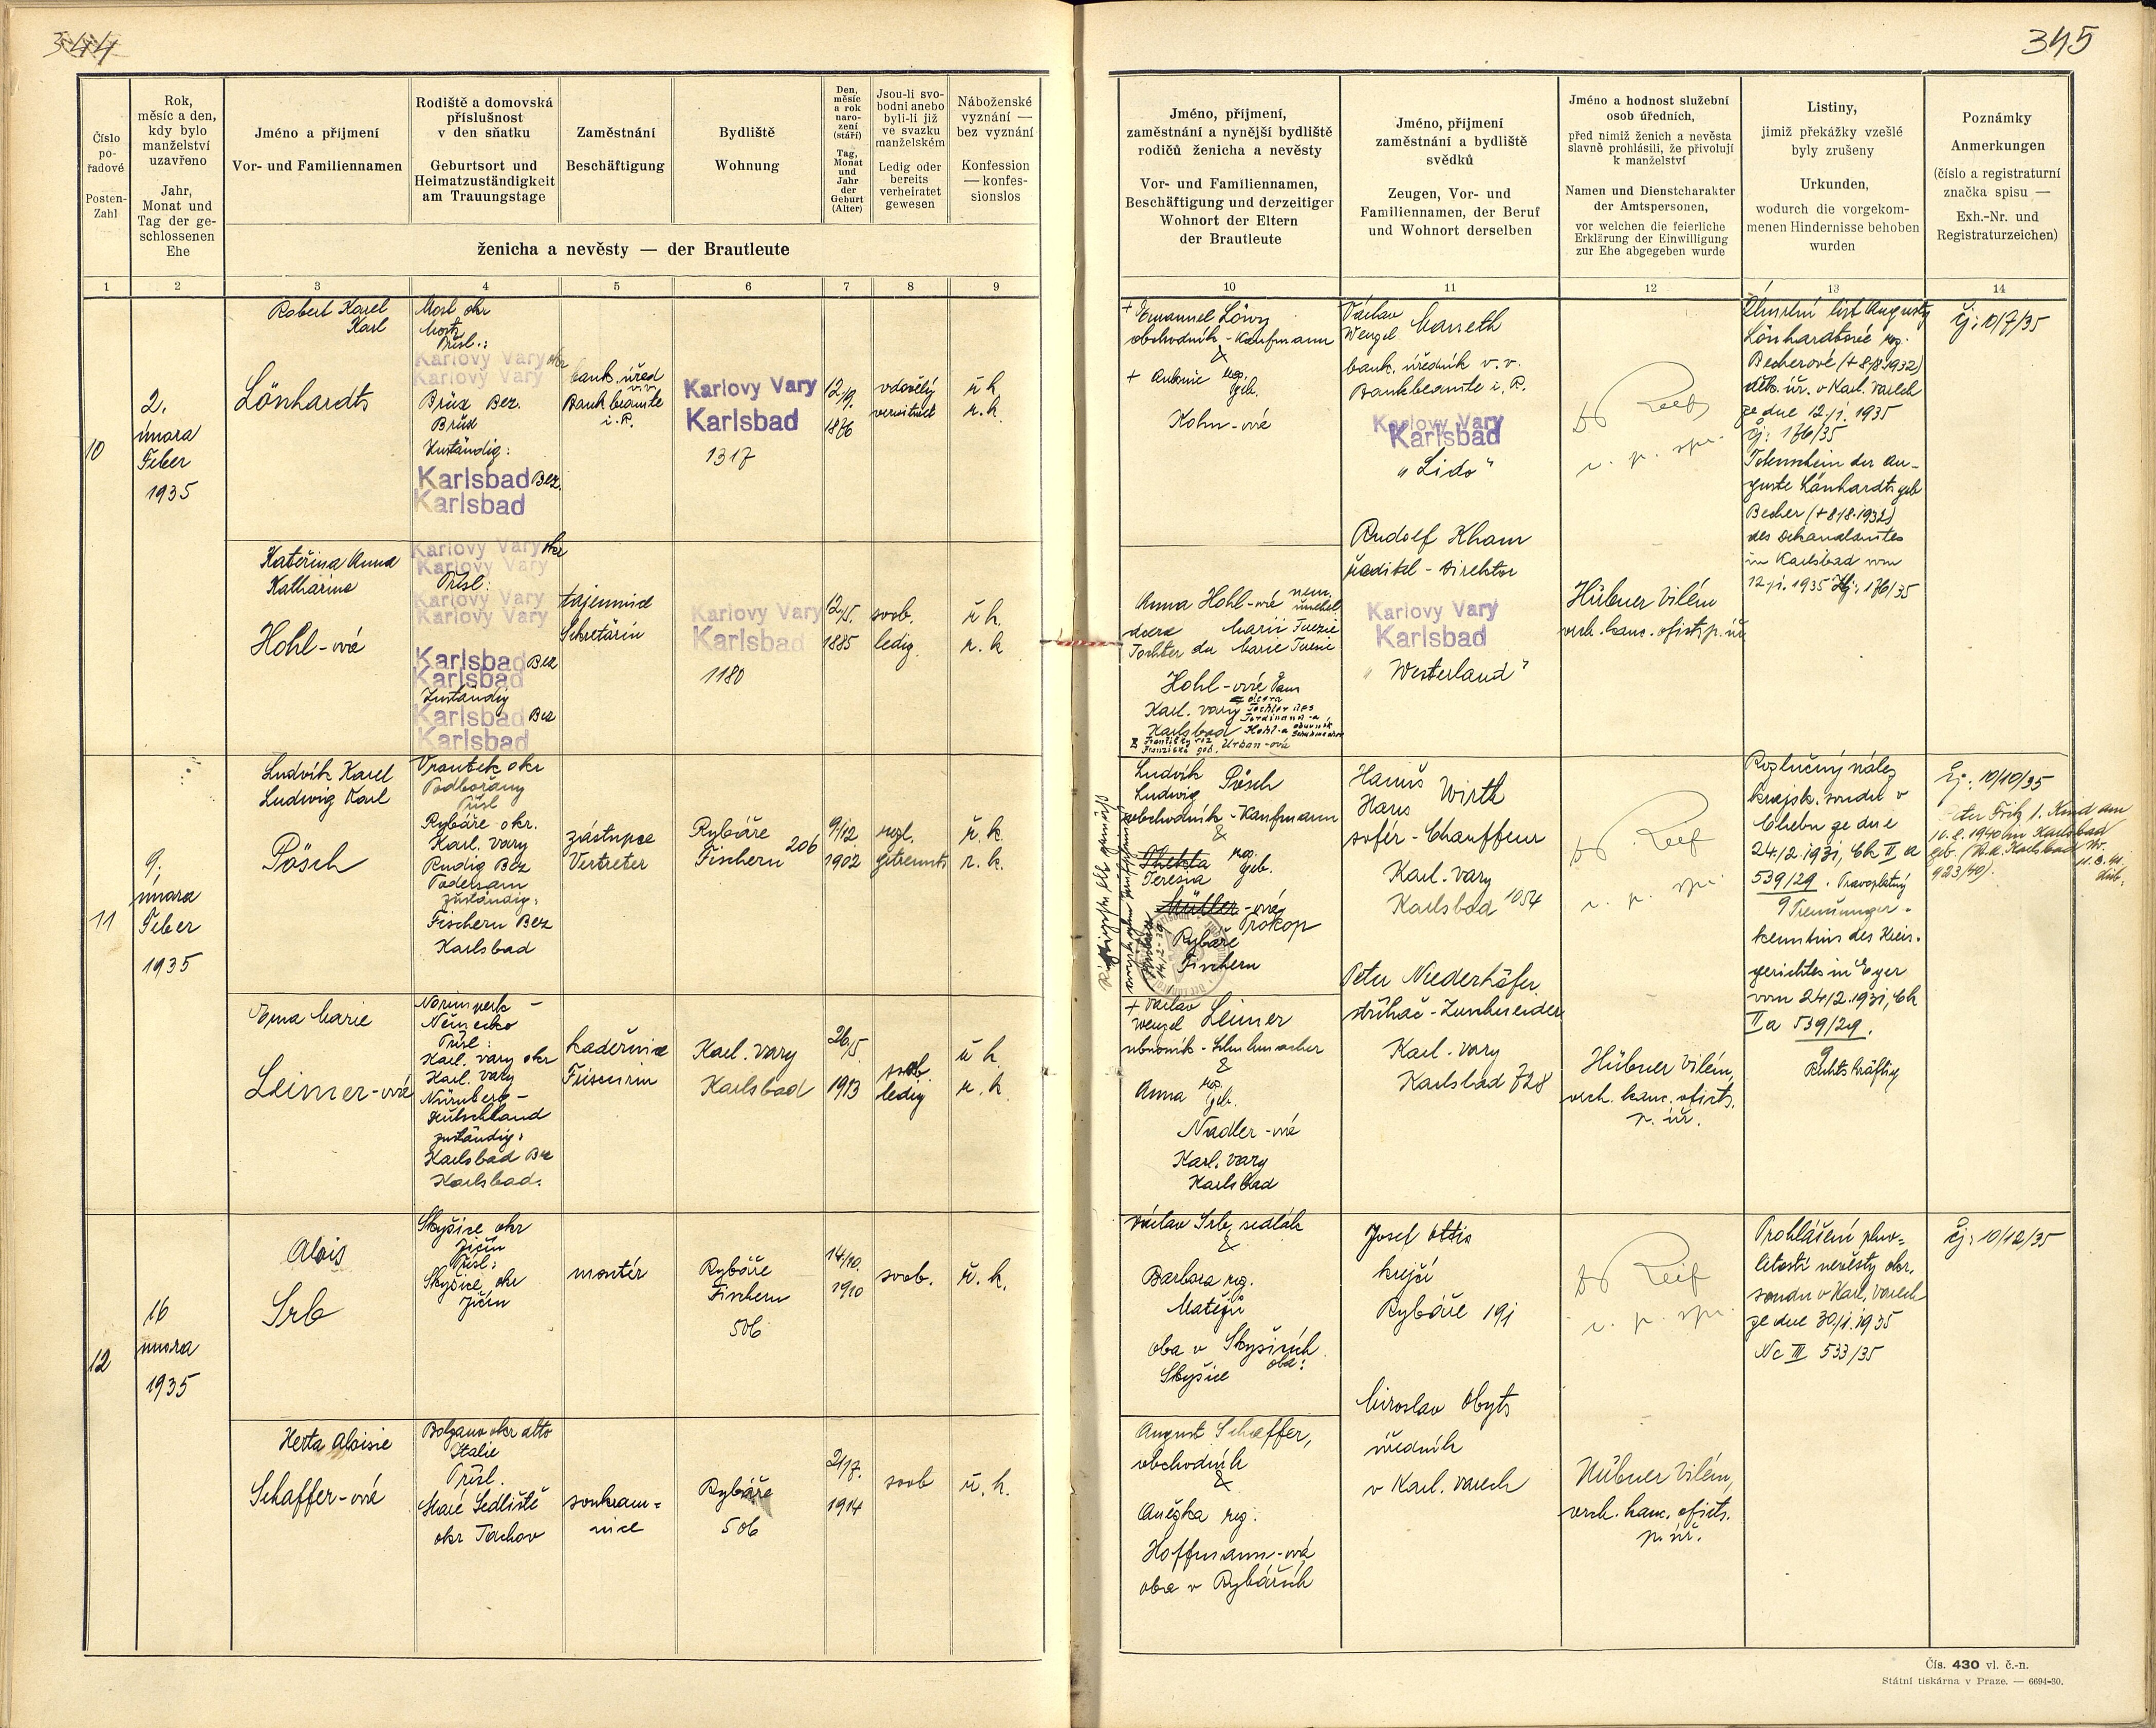 344
345
Číslo
po-
řadové
Posten-
Zahl
Rok,
měsíc a den,
kdy bylo
manželství
uzavřeno
Jahr,
Monat und
Tag der ge-
schlossenen
Ehe
Jméno a příjmení
Vor- und Familiennamen
Rodiště a domovská
příslušnost
v den sňatku
Geburtsort und
Heimatzuständigkeit
am Trauungstage
Zaměstnání
Beschäftigung
Bydliště
Wohnung
Den,
měsíc
a rok
naro-
zení
(stáří)
Tag,
Monat
und
Jahr
der
Geburt
(Alter)
Jsou-li svo-
bodni anebo
byli-li již
ve svazku
manželském
Ledig oder
bereits
verheiratet
gewesen
Náboženské
vyznání —
bez vyznání
Konfession
— konfes-
sionslos
ženicha a nevěsty — der Brautleute
Jméno, příjmení,
zaměstnání a nynější bydliště
rodičů ženicha a nevěsty
Vor- und Familiennamen,
Beschäftigung und derzeitiger
Wohnort der Eltern
der Brautleute
Jméno, příjmení
zaměstnání a bydliště
svědků
Zeugen, Vor- und
Familiennamen, der Beruf
und Wohnort derselben
Jméno a hodnost služební
osob úředních,
před nimiž ženich a nevěsta
slavně prohlásili, že přivolují
k manželství
Namen und Dienstcharakter
der Amtspersonen,
vor welchen die feierliche
Erklärung der Einwilligung
zur Ehe abgegeben wurde
Listiny,
jimiž překážky vzešlé
byly zrušeny
Urkunden,
wodurch die vorgekom-
menen Hindernisse behoben
wurden
Poznámky
Anmerkungen
(číslo a registraturní
značka spisu —
Exh.-Nr. und
Registraturzeichen)
1 2 3 4 5 6 7 8 9 10 11 12 13 14
10
2.
února
Feber
1935
Robert Karel
Karl
Lönhardts
Most okr
Most
Přísl.:
Karlovy Vary okr
Karlovy Vary
Brüx Bez.
Brüx
Zuständig:
Karlsbad Bez.
Karlsbad
bank. úřed
v.v.
Bankbeamte
i.R.
Karlovy Vary
Karlsbad
1317
12/9.
1876
vdovělý
verwitwet
ř. k
r. k.
+ Emanuel Löwy
obchodník - Kaufmann
&
+ Antonie roz.
geb.
Kohn-ová
Václav
Wenzel
bank. úředník v. v.
Bankbeamte i. R.
Karlovy Vary
Karlsbad
"Lido"
Rudolf Kham
ředitel - Direktor
Karlovy Vary
Karlsbad
"Westerland"
Úmrtní list Augusty
Lönhardtsové roz.
Becherové (+ 8/8.1932)
děk. úř. v Karl. Varech
ze dne 12./1. 1935
čj: 176/35
Totenschein der Au-
guste Lönhardts geb
Becher (+ 8/8.1932)
des Dekanalamtes
in Karlsbad vom
12./1. 1935 Zj: 176/35
čj: 10/7/35
Kateřina Anna
Katharina
Hohl-ová
Karlovy Vary okr
Karlovy Vary
Přísl:
Karlovy Vary
Karlovy Vary
Karlsbad Bez
Karlsbad
Zuständig
Karlsbad Bez
Karlsbad
tajemnice
Sekretärin
Karlovy Vary
Karlsbad
1180
12/5.
1885
svob.
ledig
ř k.
r. k
Anna Hohl-ová
dcera Marii Terezie
Tochter der Marie Teresie
Hohl-ové
Karl. Vary
Karlsbad
dcera
Tochter des
Ferdinand-a
Hohl-a
Urban-ová
Hübner Vilém
vrch. kanc. ofist. p. úř.
11
9.
února
Feber
1935
Ludvík Karel
Ludwig Karl
Pösch
Vroutek okr
Podbořany
Přísl
Rybáře okr.
Karl. Vary
Rudig Bez
Podersam
zuständig:
Fischern Bez
Karlsbad
zástupce
Vertreter
Rybáře
Fischern 206
9/12.
1902
rozl.
getrennt
ř. k.
r. k.
Ludvík
Ludwig Pösch
obchodník - Kaufmann
&
Thekla roz.
Teresia geb.
Müller-ová
Prokop
Rybáře
Fischern
Hanuš
Hans Wirth
šofér - Chauffeur
Karl. Vary
Karlsbad 1054
Peter Niederhöfer
střihač - Zuschneider
Karl. Vary
Karlsbad 728
Rozlučný nález
krajsk. soudu v
Chebu ze dne
24./2. 1931, Ck II a
539/29. Pravoplatný
Trennungser-
kenntnis des Kreis-
gerichtes in Eger
vom 24./2. 1931, Ck
II a 539/29.
Rechtskräftig
čj: 10/10/35
Ema Marie
Leimer-ová
Norimperk -
Německo
Přísl:
Karl. Vary okr
Karl. Vary
Nürnberg -
Deutschland
zuständig:
Karlsbad Bez
Karlsbad.
kadeřnice
Friseurin
Karl. Vary
Karlsbad
26/5.
1913
svob.
ledig
ř k.
r. k.
+ Václav
Wenzel Leimer
obuvník - Schuhmacher
&
Anna roz.
geb.
Nadler-ová
Karl. Vary
Karlsbad
Hübner Vilém,
vrch. kanc. ofist.
p. úř.
12
16
února
1935
Alois
Srb
Skyšice okr
Jičín
Přísl:
Skyšice okr
Jičín
montér
Rybáře
Fischern
506
14/10.
1910
svob.
ř. k.
Václav Srb, sedlák
&
Barbara roz.
Matějů
oba v Skyšicích
Skyšice
Josef Ottis
krejčí
Rybáře 191
Miroslav Obyts
úředník
v Karl. Varech
Prohlášení plno-
letosti nevěsty okr.
soudu v Karl. Varech
ze dne 30/1. 1935
Nc III 533/35
čj: 10/12/35
Herta Aloisie
Schaffer-ová
Bolzano okr alto
Italie
Přísl.
Staré Sedliště
okr Tachov
soukrom-
nice
Rybáře
506
21/7.
1914
svob
ř. k.
August Schaffer,
obchodník
&
Anežka roz.
Hoffmann-ová
oba v Rybářích
Hübner Vilém,
vrch. kanc. ofist.
p. úř.
Čís. 430 vl. č.-n.
Státní tiskárna v Praze. — 6694-30.